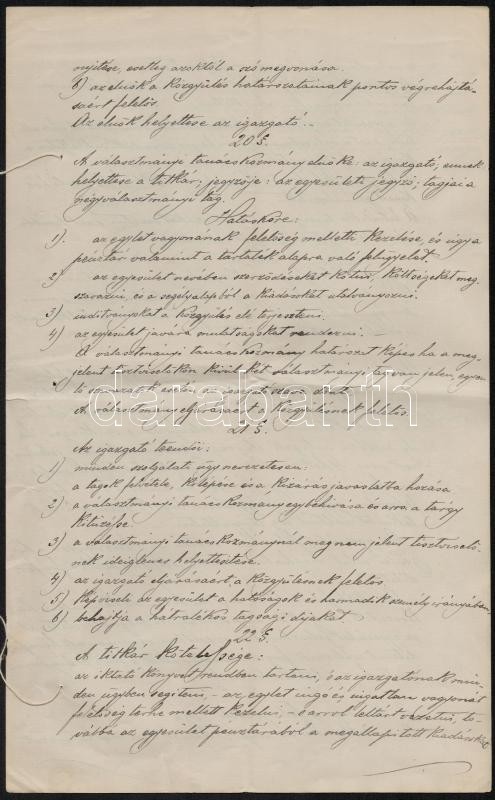 nyitése, esetleg azoktól a szó megvonása.
6) az elnök a közgyülés határozatainak pontos végrehajtá-
sáért felelős.
Az elnök helyettese az igazgató. -
20 §.
A választmányi tanácskozmány elnöke: az igazgató; ennek
helyettese a titkár; jegyzője: az egyesületi jegyző; tagjai a
négy választmányi tag.
Hatásköre:
1). az egylet vagyonának felelősség melletti kezelése, és úgy a
pénztár valamint a tartalék alapra való felügyelet.
2) az egyesület nevében szerződéseket kötni, költségeket meg
szavazni, és a segélyalapból a kiadásokat utalványozni.
3) inditványokat a közgyülés elé terjeszteni.
4) az egyesület javára mulatságokat rendezni. -
A választmányi tanácskozmány határozat képes ha a meg-
jelent tisztviselőkön kivül két választmányi tag van jelen, egyen-
lő szavazatok esetén az elnök szava dönt.
A választmány eljárásáért a közgyülésnek felelős.
21 §.
Az igazgató teendői:
1) minden szolgálati ügy nevezetesen:
a tagok felvétele, kilépése és a kizárás javaslatba hozása
2) a választmányi tanácskozmány egybehivása és arra a tárgy
kitüzése.
3) a választmányi tanácskozmánynál meg nem jelent tisztviselő-
nek ideiglenes helyettesitése.
4) az igazgató eljárásáért a közgyülésnek felelős
5) képviseli az egyesület a hatóságok és harmadik személy irányában,
6) behajtja a hátralékos tagsági dijakat.
22 §.
A titkár kötelessége:
az iktató könyvet rendben tartani, és az igazgatónak min-
den ügyben segiteni, - az egylet ingó és ingatlan vagyonát
felelősség terhe mellett kezelni, - s arról leltárt vezetni, to-
vábbá az egyesület pénztárából a megállapitott kiadásokat
darabanth.com